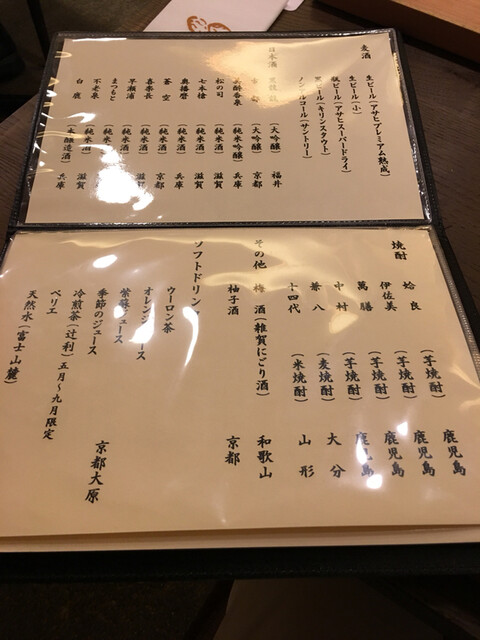 麦酒
生ビール(アサヒプレミアム熟成)
生ビール(小)
瓶ビール(アサヒスーパードライ)
ビール(キリンスタウト)
ノンアルコール(サントリー)
日本酒 (大吟醸) 福井
(大吟醸) 京都
香泉 (純米吟醸) 兵庫
松の司 (純米酒) 滋賀
七本槍 (純米酒) 滋賀
奥播磨 (純米酒) 兵庫
蒼空 (純米酒) 京都
喜楽長 (純米酒) 滋賀
早瀬浦 (純米酒)
まつもと (純米酒)
不老泉 (純米酒) 滋賀
白鹿 (本醸造酒) 兵庫
焼酎
姶良 (芋焼酎) 鹿児島
伊佐美 (芋焼酎) 鹿児島
萬膳 (芋焼酎) 鹿児島
中村 (芋焼酎) 鹿児島
兼八 (麦焼酎) 大分
十四代 (米焼酎) 山形
その他 梅酒(雑賀にごり酒) 和歌山
柚子酒 京都
ソフトドリンク
ウーロン茶
オレンジジュース
紫蘇ジュース
季節のジュース 京都大原
冷煎茶(辻利)五月〜九月限定
ペリエ
天然水(富士山麓)